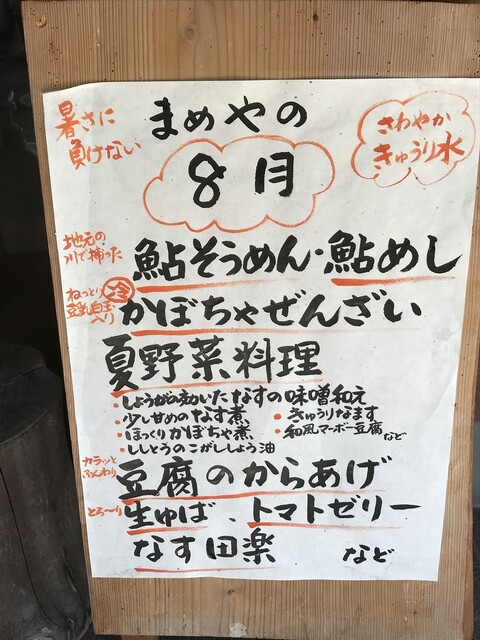 暑さに
負けない
まめやの
8月
さわやか
きゅうり水
地元の
川で捕った
鮎そうめん・鮎めし
ねっとり
豆乳白玉
入り
冷
かぼちゃぜんざい
夏野菜料理
・しょうがの効いたなすの味噌和え
・少し甘めのなす煮
・きゅうりなます
・ほっくりかぼちゃ煮
・和風マーボー豆腐など
・ししとうのこがししょう油
カラッと
ふんわり
豆腐のからあげ
とろ〜り
生ゆば、トマトゼリー
なす田楽
など